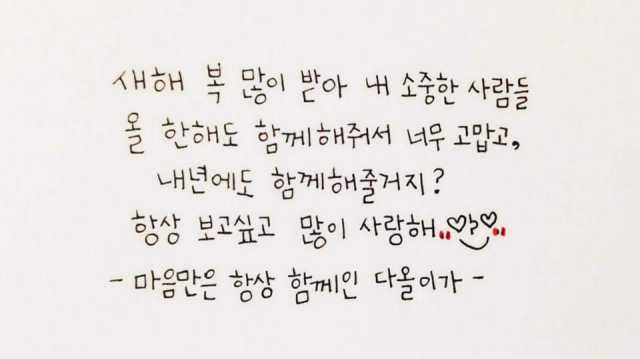 새해 복 많이 받아 내 소중한 사람들
올 한해도 함께해줘서 너무 고맙고,
내년에도 함께해줄거지?
항상 보고싶고 많이 사랑해
- 마음만은 항상 함께인 다올이가 -